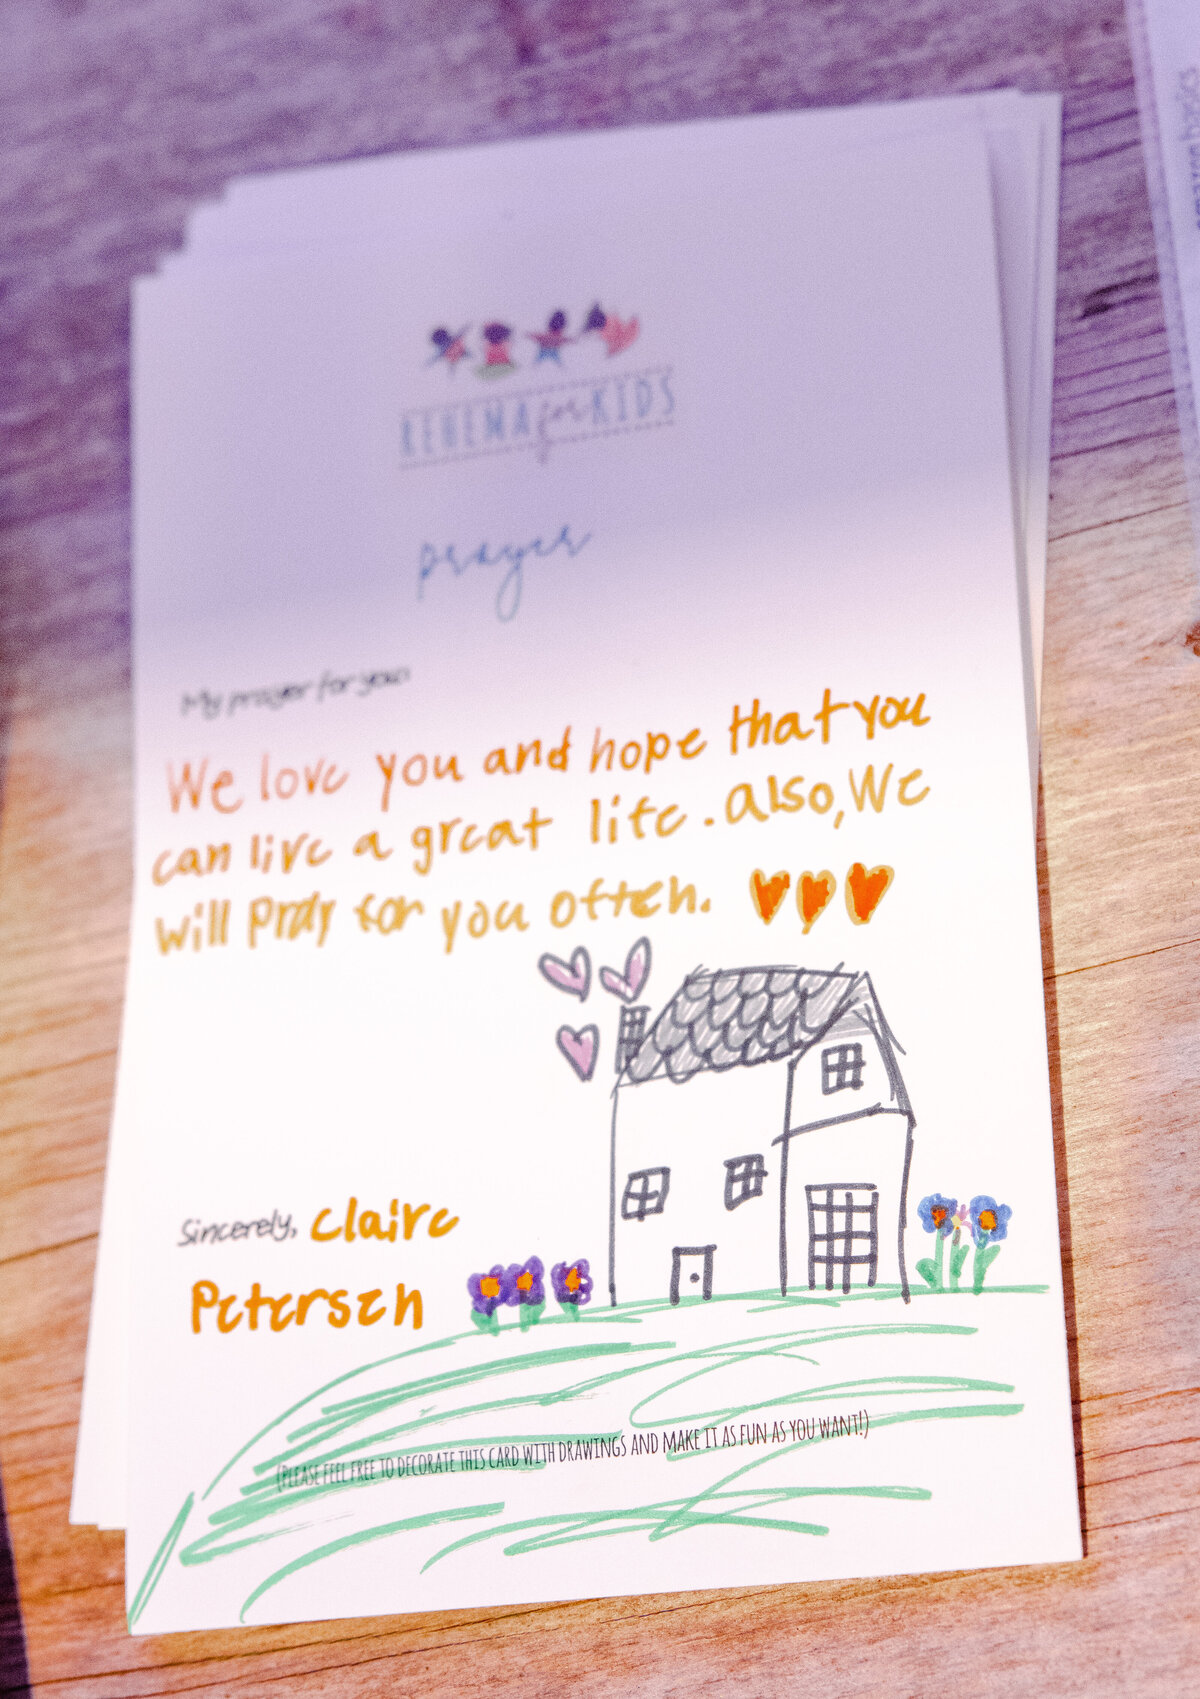 REHEMA for KIDS
prayer
My prayer for you:
We love you and hope that you
can live a great life. also, We
will pray for you often.
Sincerely, Claire
Petersen
(PLEASE FEEL FREE TO DECORATE THIS CARD WITH DRAWINGS AND MAKE IT AS FUN AS YOU WANT!)